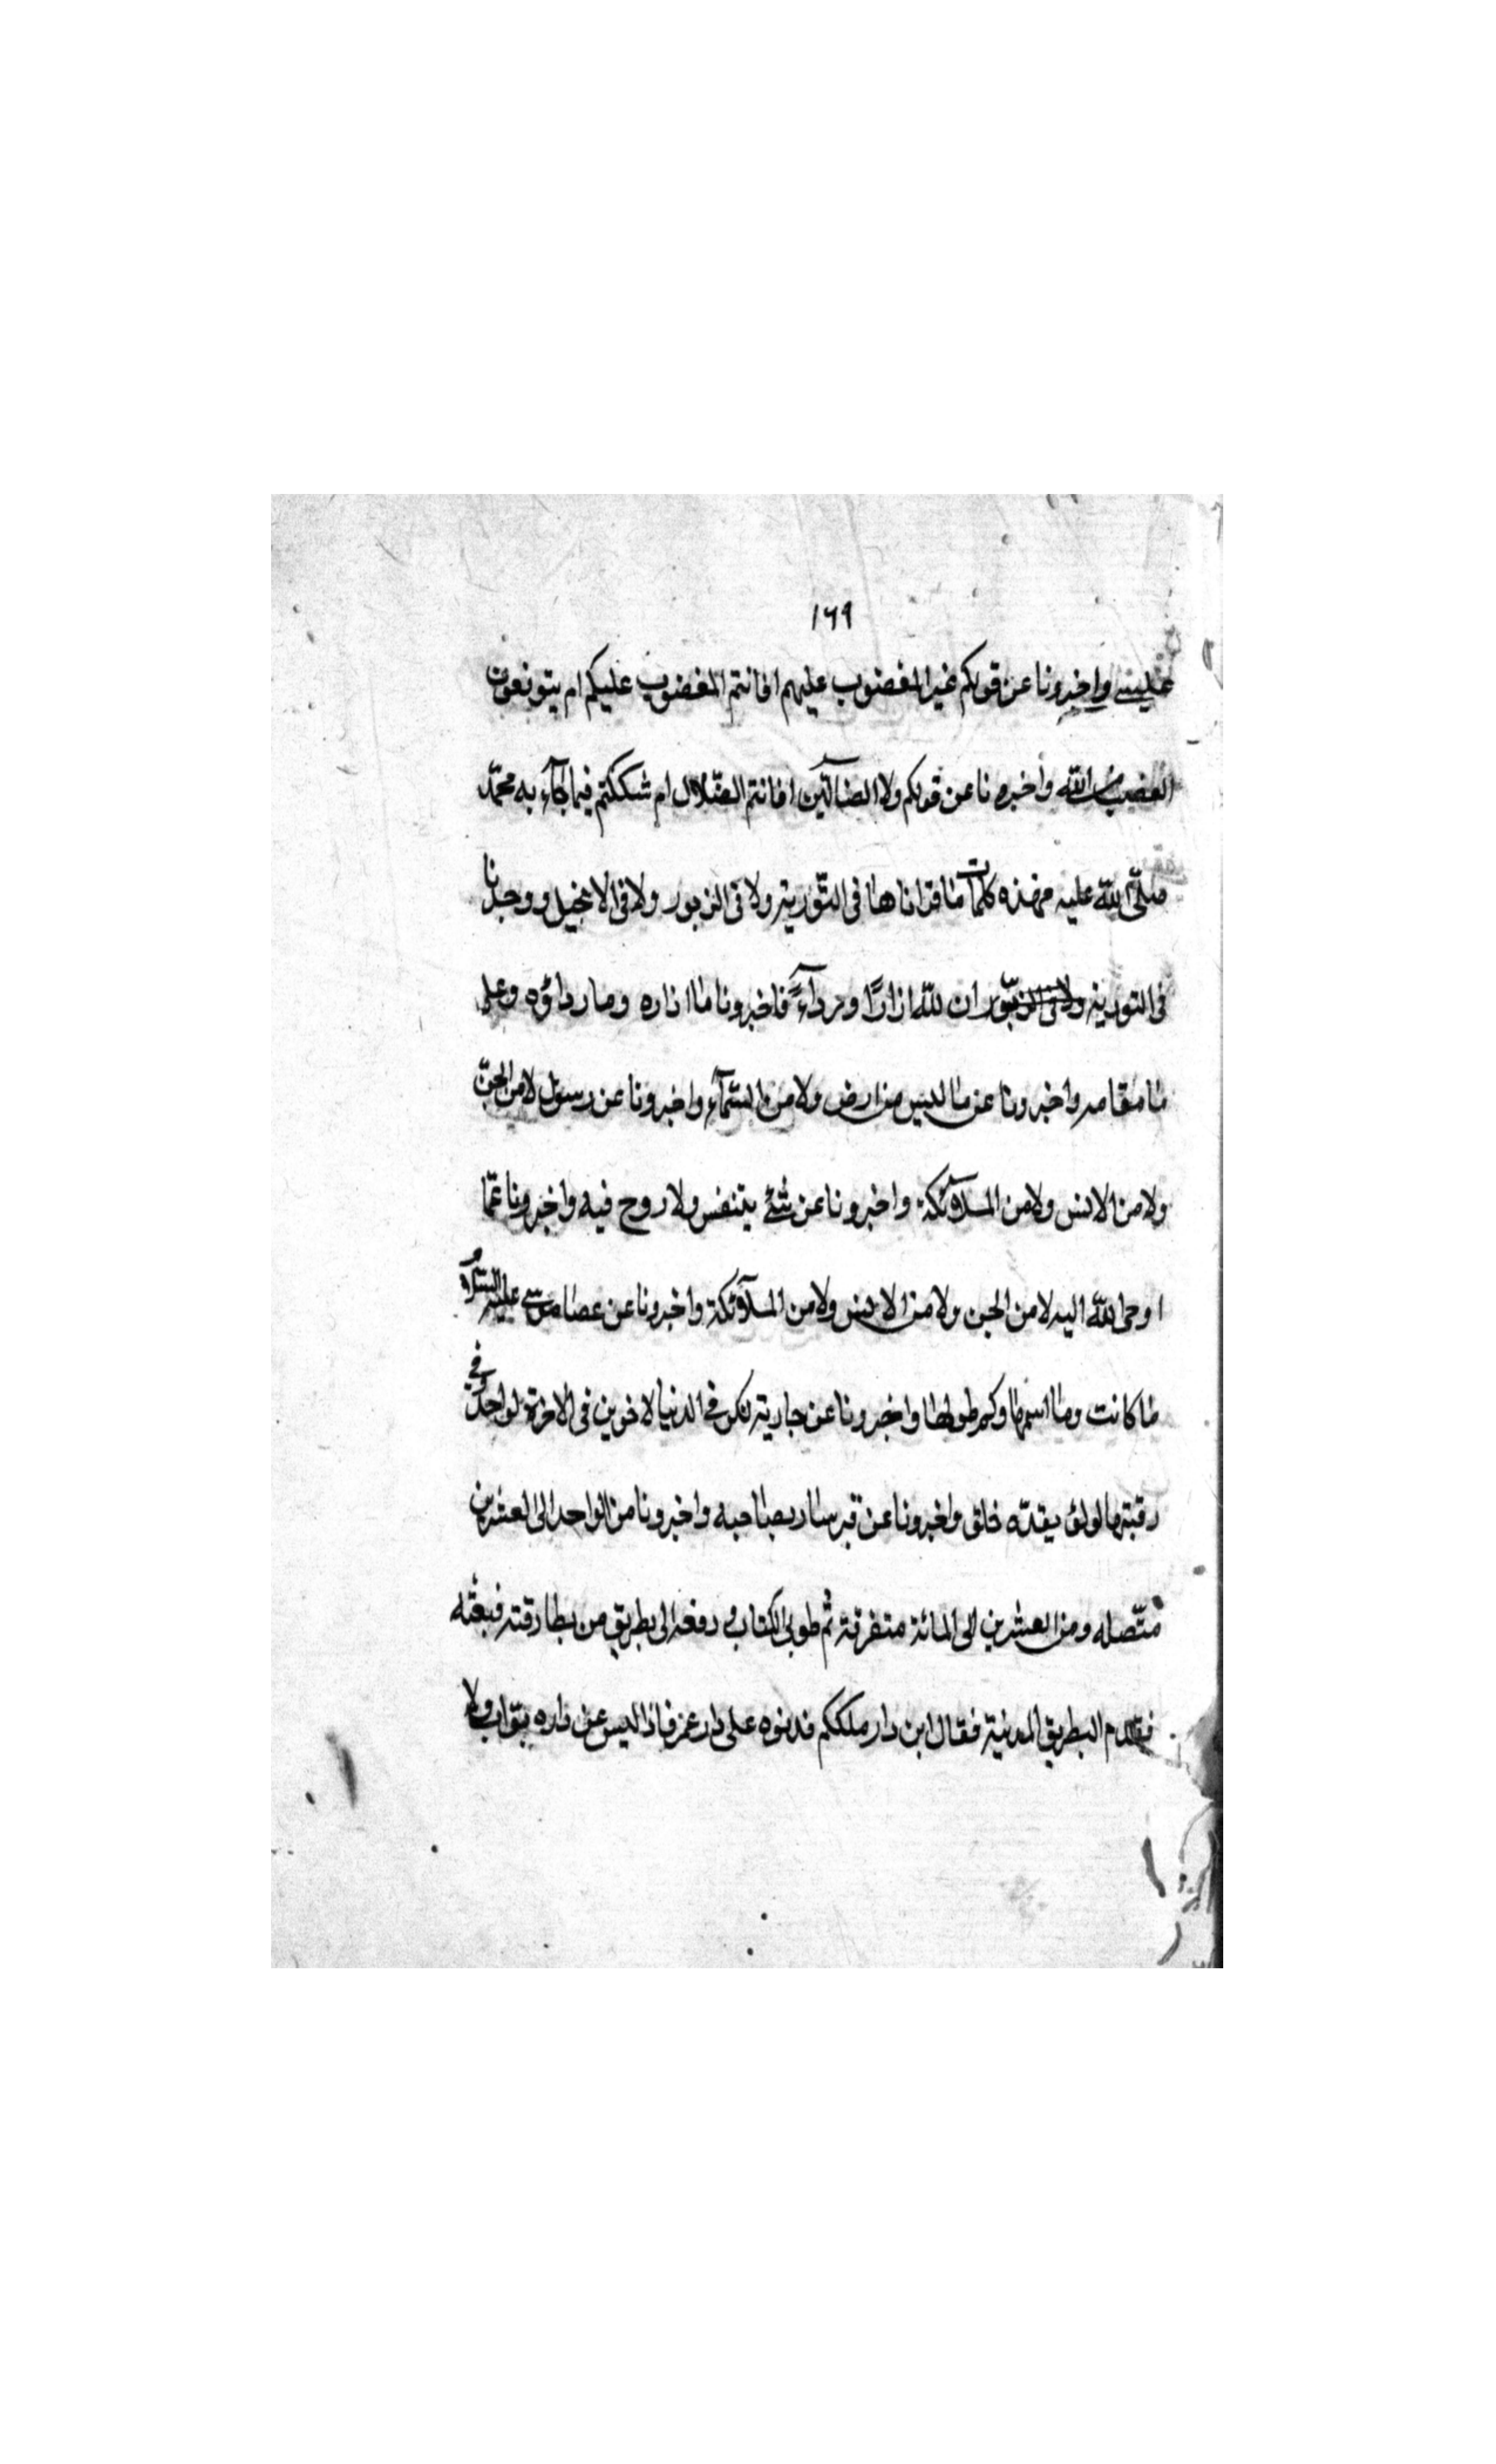 ١٦٩
واخبرونا عن قولكم غير المغضوب عليهم افانتم المغضوب عليكم ام يتوقعون
الغضب من الله واخبرونا عن قولكم ولا الضالّين افانتم الضّلال ام شككتم فيما جآء به محمّد
صلّى الله عليه فهذه كلمات ما قراناها فى التّورية ولا فى الزبور ولا فى الانجيل ووجدنا
فى التورية ولا فى الزبّور ان للّه ازارًا ورداءً فاخبرونا ما ازاره وما رداؤه وعلى
ما مقامه واخبرونا عن ما ليس من ارض ولا من السّمآء واخبرونا عن رسول لا من الجنّ
ولا من الانس ولا من الملآئكة واخبرونا عن شئ يتنفس ولا روح فيه واخبرونا عمّا
اوحى الله اليه لا من الجن ولا من الانس ولا من الملآئكة واخبرونا عن عصا موسى عليه السّلام
ما كانت وما اسمها وكم طولها واخبرونا عن جارية بكر فى الدنيا لاخوين فى الاخرة لواحد وفي
رقبتها لؤلؤ خلق واخبرونا عن قبر سار بصاحبه واخبرونا من الواحد الى العشرين
متّصله ومن العشرين الى المائة متفرقة ثم طوى الكتاب ودفعه الى بطريق من بطارقته فبعثه
فقدم البطريق المدينة فقال اين دار ملككم فدلوه على دار عمر فاذا ليس عن داره بوّاب ولا